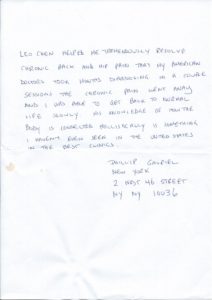 LEO CHEN HELPED ME TREMENDOUSLY RESOLVE
CHRONIC BACK AND HIP PAIN THAT MY AMERICAN
DOCTORS TOOK MONTHS DIAGNOSING. IN A COUPLE
SESSIONS THE CHRONIC PAIN WENT AWAY
AND I WAS ABLE TO GET BACK TO NORMAL
LIFE SLOWLY. HIS KNOWLEDGE OF HOW THE
BODY IS CONNECTED HOLISTICALLY IS SOMETHING
I HAVEN'T EVEN SEEN IN THE UNITED STATES
IN THE BEST CLINICS.
PHILLIP GABRIEL
NEW YORK
2 WEST 46 STREET
NY NY 10036